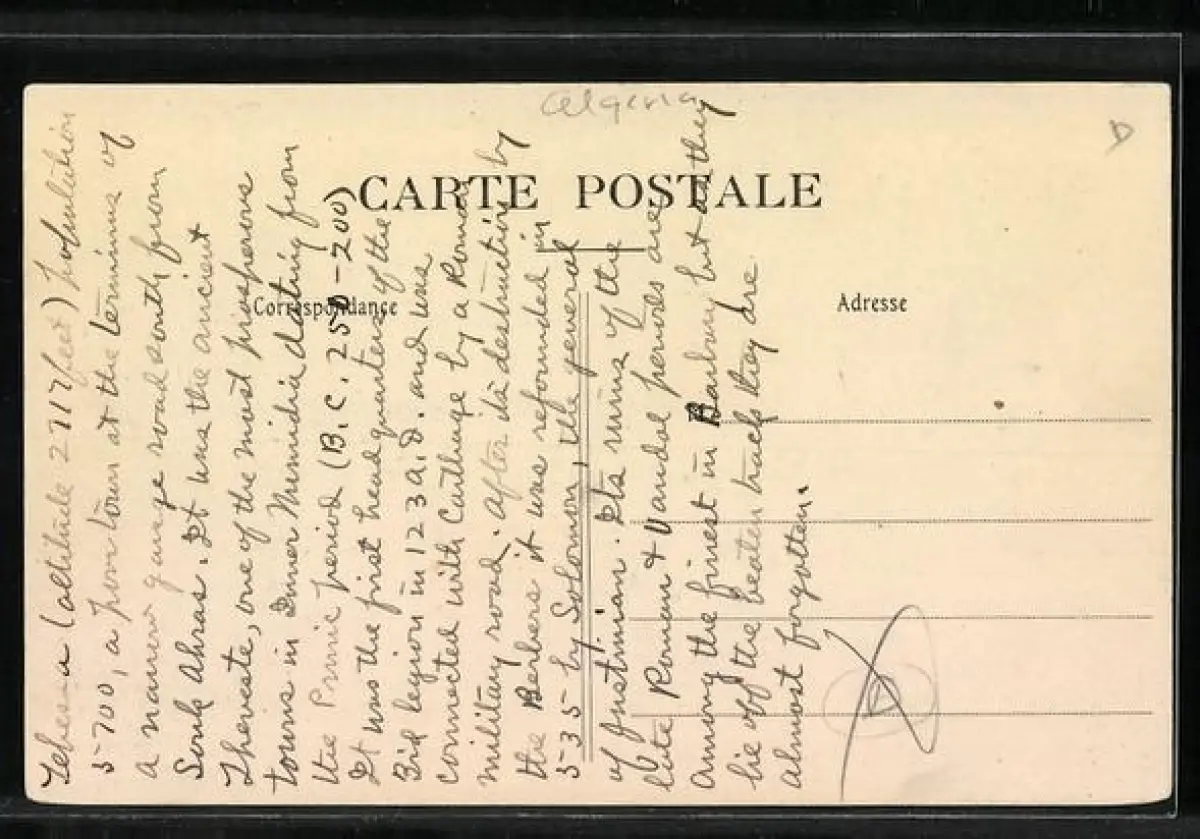 Algeria
CARTE POSTALE
Correspondance
Adresse
Tebessa (altitude 2717 feet) population
5700, a poor town at the terminus of
a narrow guage road south from
Souk Ahras. It was the ancient
Theveste, one of the most prosperous
towns in Inner Numidia dating from
the Punic period (B.C. 250-200)
It was the first headquarters of the
3rd legion in 123 A.D. and was
connected with Carthage by a Roman
military road. After its destruction by
the Berbers it was refounded in
535 by Solomon, the general
of Justinian. Its ruins of the
late Roman & Vandal periods are
among the finest in Barbary but as they
lie off the beaten track they are
almost forgotten.